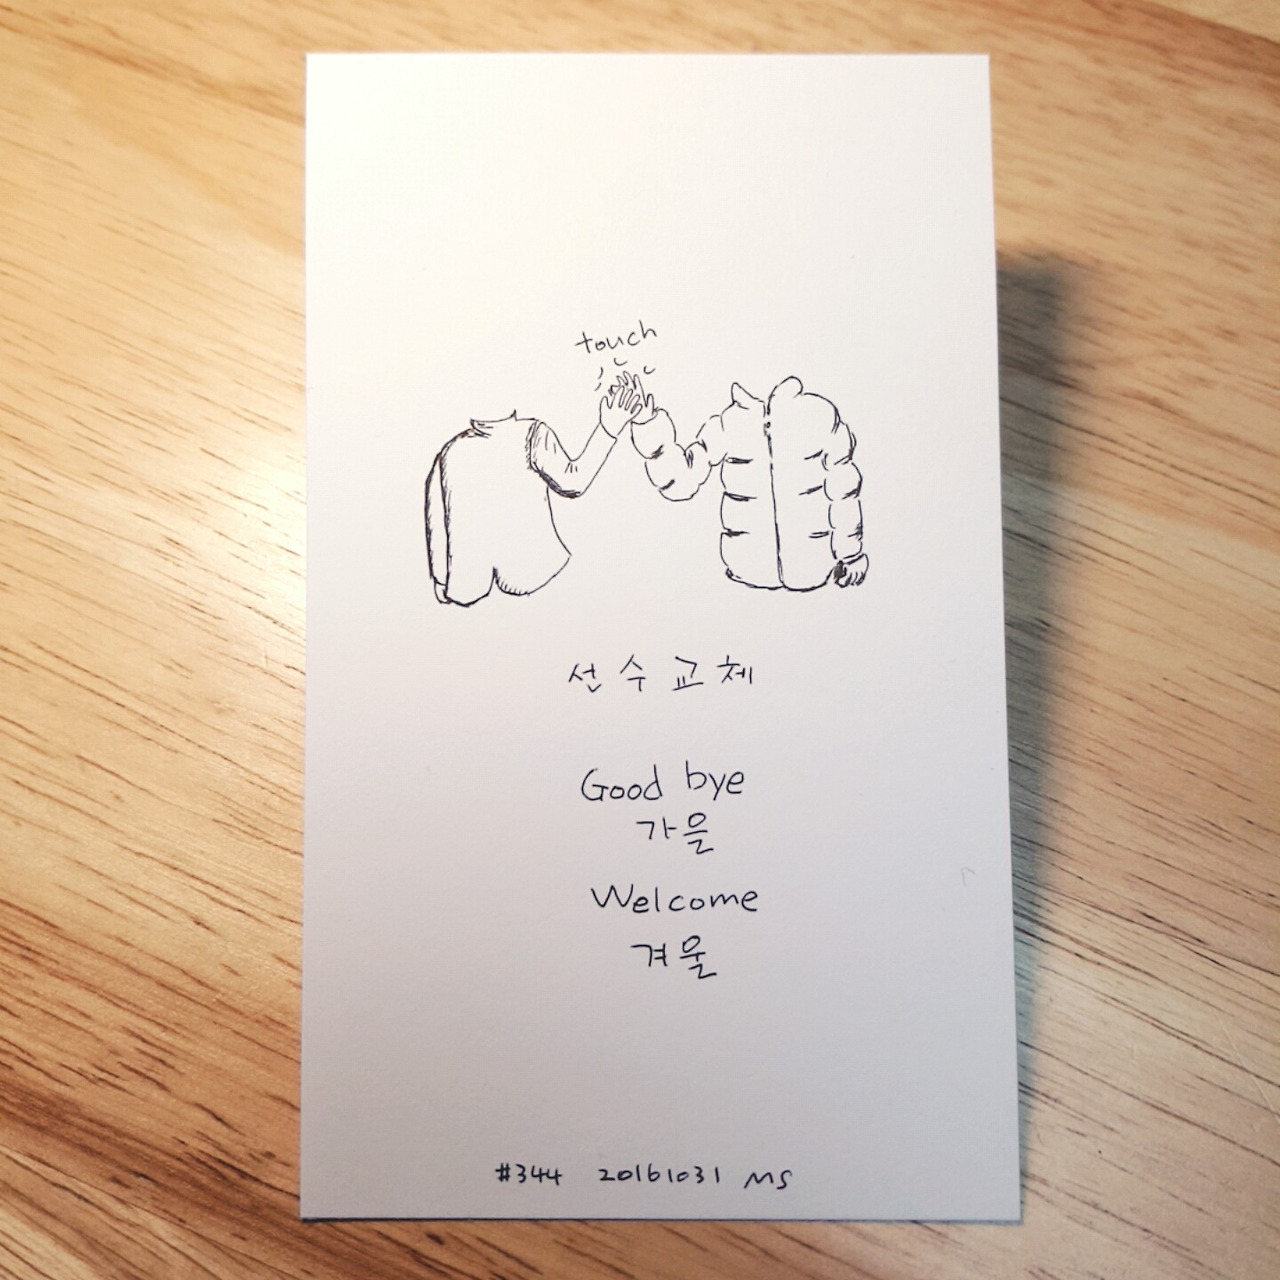 touch
선수교체
Good bye
가을
Welcome
겨울
#344 20161031 MS